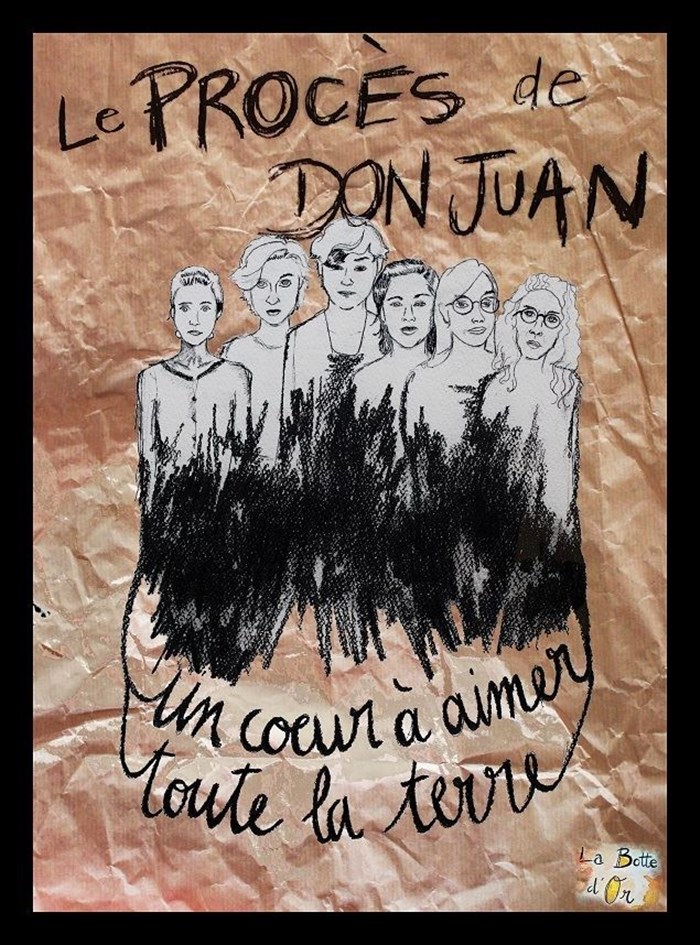 Le PROCÈS de
DON JUAN
un coeur à aimer
toute la terre
La Botte
d'Or